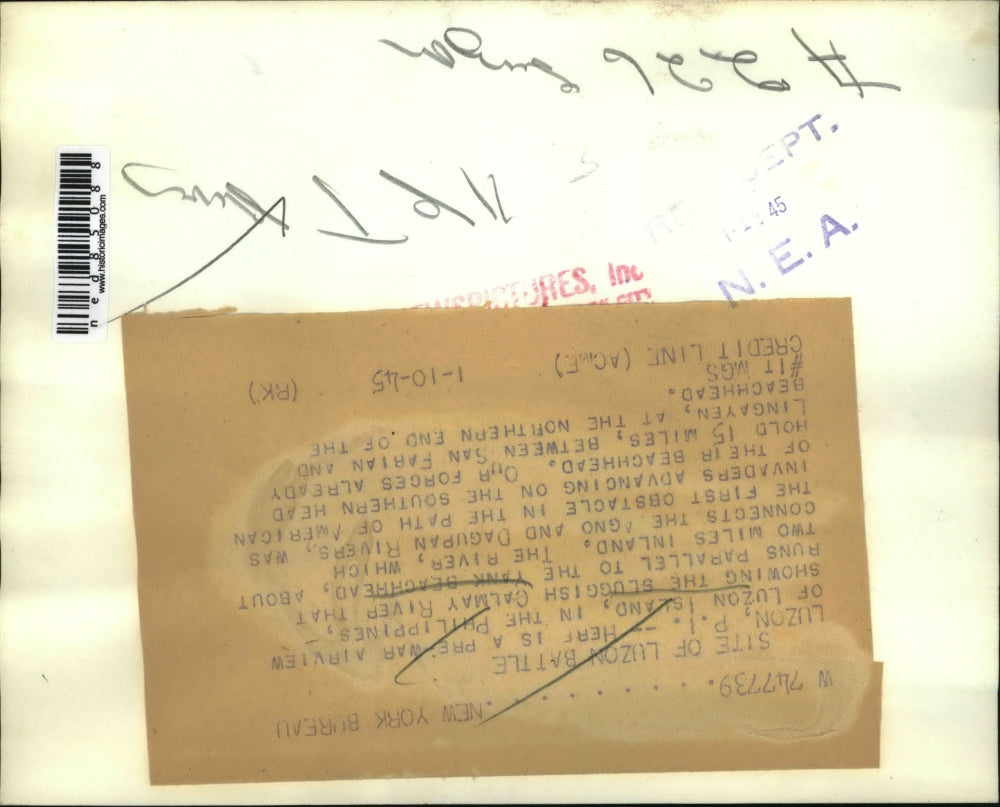 W 747739. . . . . . . . .NEW YORK BUREAU
SITE OF LUZON BATTLE
LUZON, P.I. -- HERE IS A PRE-WAR AIRVIEW
OF LUZON ISLAND, IN THE PHILIPPINES,
SHOWING THE SLUGGISH CALMAY RIVER THAT
RUNS PARALLEL TO THE TANK BEACHHEAD, ABOUT
TWO MILES INLAND. THE RIVER, WHICH
CONNECTS THE AGNO AND DAGUPAN RIVERS, WAS
THE FIRST OBSTACLE IN THE PATH OF AMERICAN
INVADERS ADVANCING ON THE SOUTHERN HEAD
OF THEIR BEACHHEAD. OUR FORCES ALREADY
HOLD 15 MILES, BETWEEN SAN FABIAN AND
LINGAYEN, AT THE NORTHERN END OF THE
BEACHHEAD.
#IT MGS
CREDIT LINE (ACME) 1-10-45 (RK)
EWSPICTURES, Inc
EPT.
45
N. E. A.
# 226
ned85088
www.historicimages.com